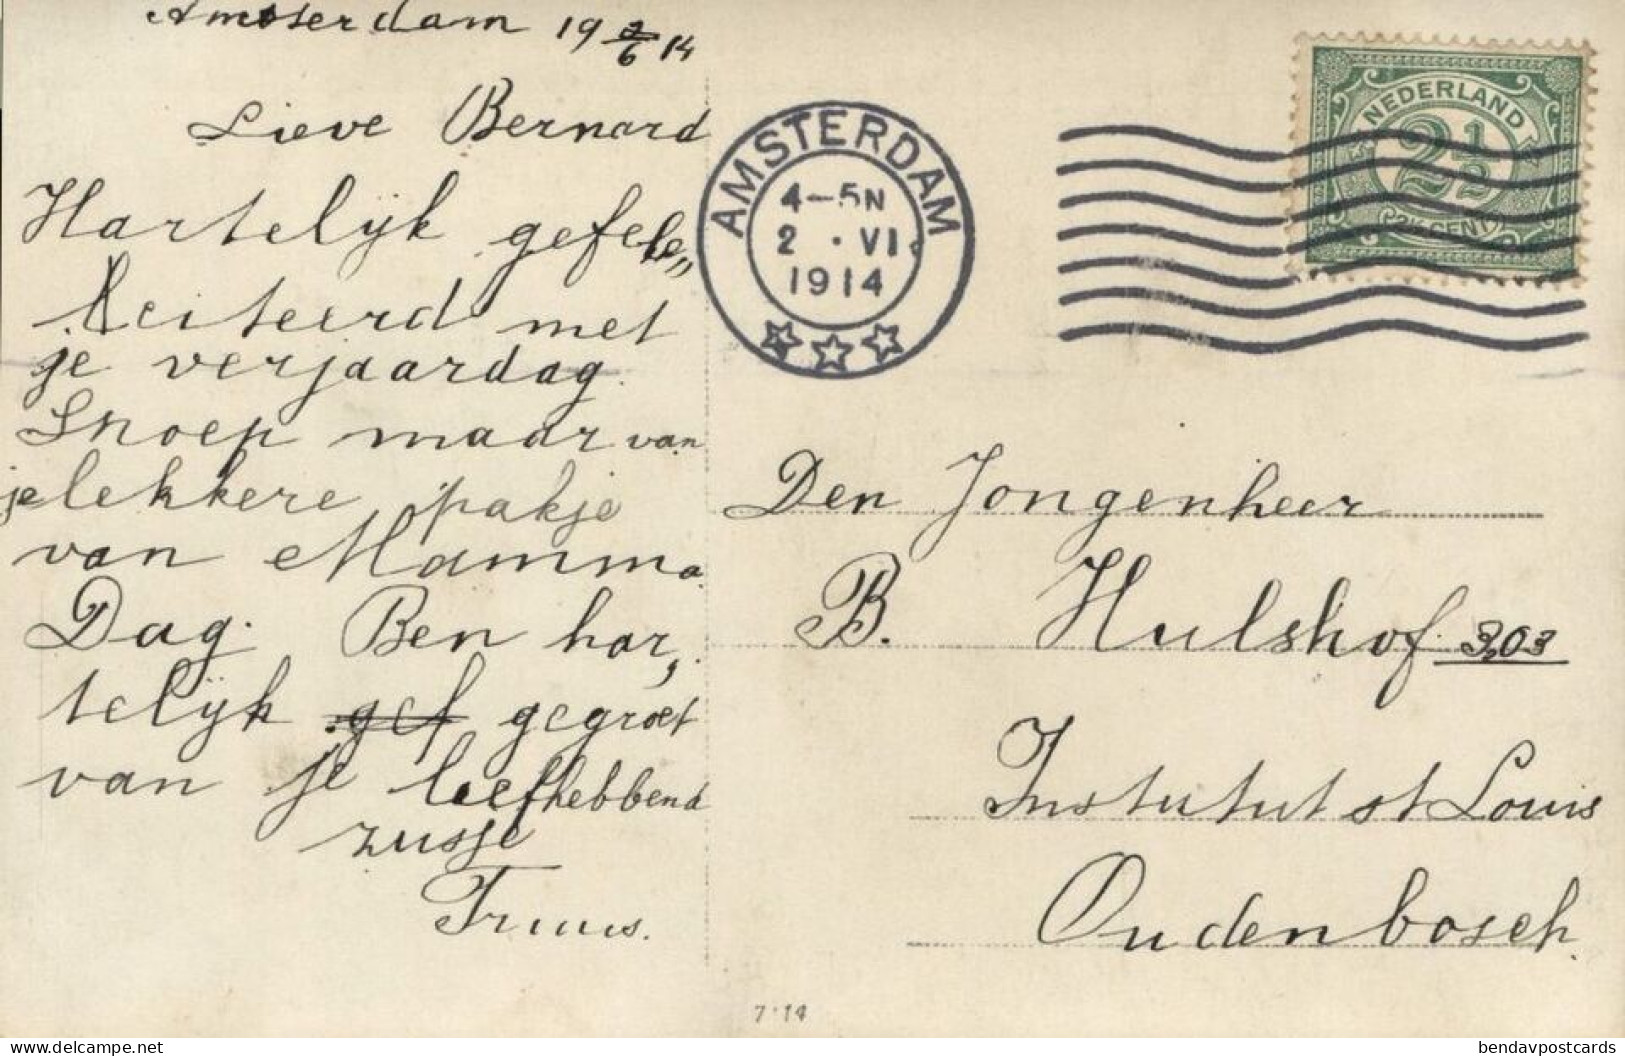 Amsterdam 19 2/6 14
Lieve Bernard
Hartelijk gefele„
leciteerd met
je verjaardag.
Snoep maar van
je lekkere pakje
van Mamma.
Dag. Ben har,
telijk gef gegroet
van je liefhebbend
zusje
Truus.
AMSTERDAM
4-5N
2 . VI.
1914
NEDERLAND
2½
2½ CENT
Den Jongenheer
B. Hulshof 303
Instutut st Louis
Oudenbosch.
7.14
www.delcampe.net
bendavpostcards